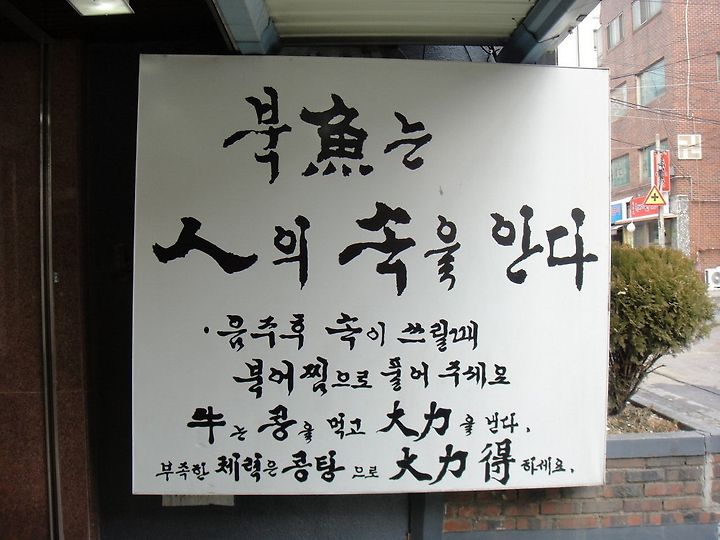 북魚는
人의 속을 안다
·음주후 속이 쓰릴때
북어찜으로 풀어 주세요
牛는 콩을 먹고 大力을 낸다.
부족한 체력은 콩탕으로 大力得하세요.